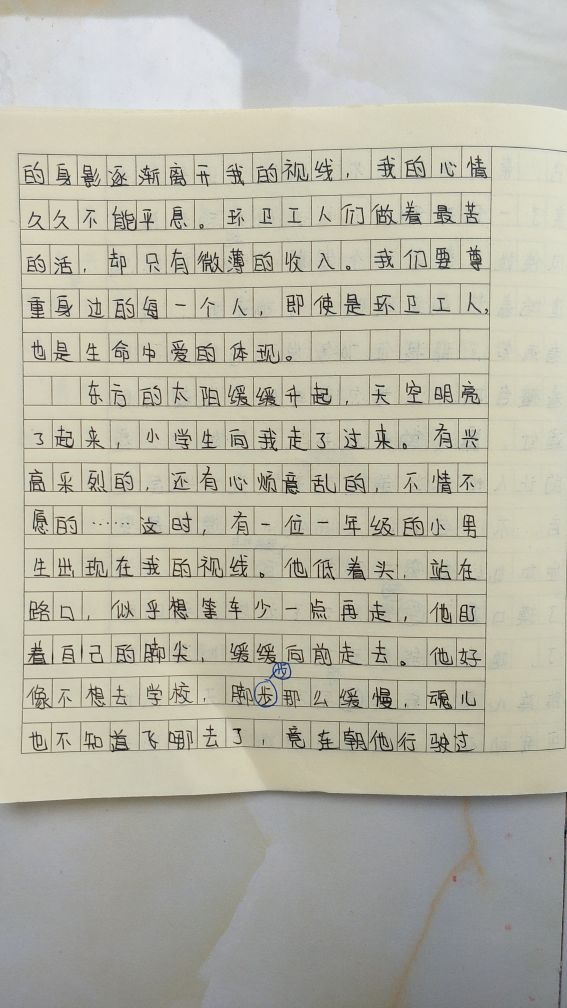 的身影逐渐离开我的视线，我的心情
久久不能平息。环卫工人们做着最苦
的活，却只有微薄的收入。我们要尊
重身边的每一个人，即使是环卫工人，
也是生命中爱的体现。
东方的太阳缓缓升起，天空明亮
了起来，小学生向我走了过来。有兴
高采烈的，还有心烦意乱的，不情不
愿的……这时，有一位一年级的小男
生出现在我的视线。他低着头，站在
路口，似乎想等车少一点再走，他盯
着自己的脚尖，缓缓向前走去。他好
步
像不想去学校，脚步那么缓慢，魂儿
也不知道飞哪去了，竟在朝他行驶过